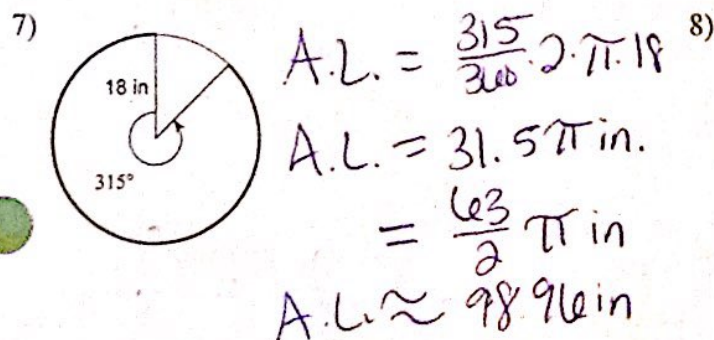 7)
18 in
315°
A.L. = 315/360 · 2 · π · 18
A.L. = 31.5π in.
= 63/2 π in
A.L. ≈ 98.96in
8)